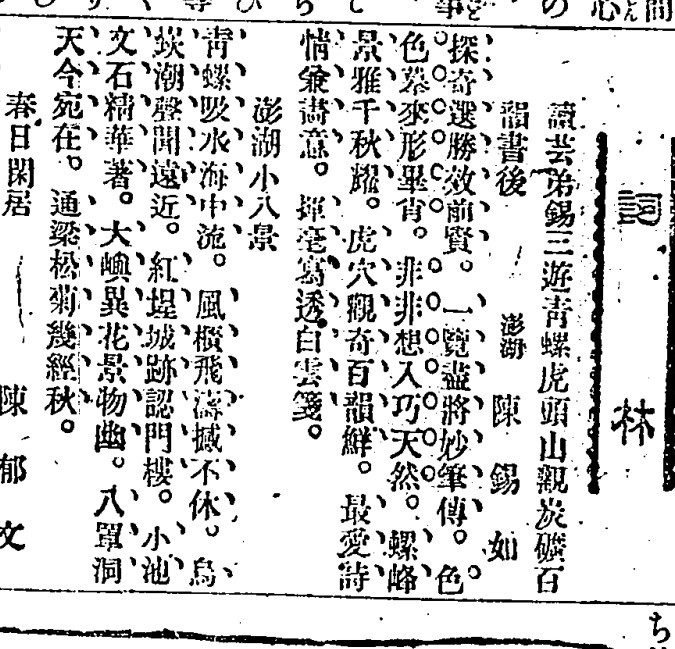 詞林
讀芸弟錫三遊青螺虎頭山觀炭礦百
韻書後 澎湖 陳錫如
探奇選勝效前賢。一覽盡將妙筆傳。色
色摹來形畢肖。非非想入巧天然。螺峰
景雅千秋耀。虎穴觀奇百韻鮮。最愛詩
情兼畵意。揮毫寫透白雲箋。
澎湖小八景
青螺吸水海中流。風櫃飛濤撼不休。烏
崁潮聲聞遠近。紅埕城跡認門樓。小池
文石精華著。大嶼異花景物幽。八罩洞
天今宛在。通梁松菊幾經秋。
春日閑居 陳郁文